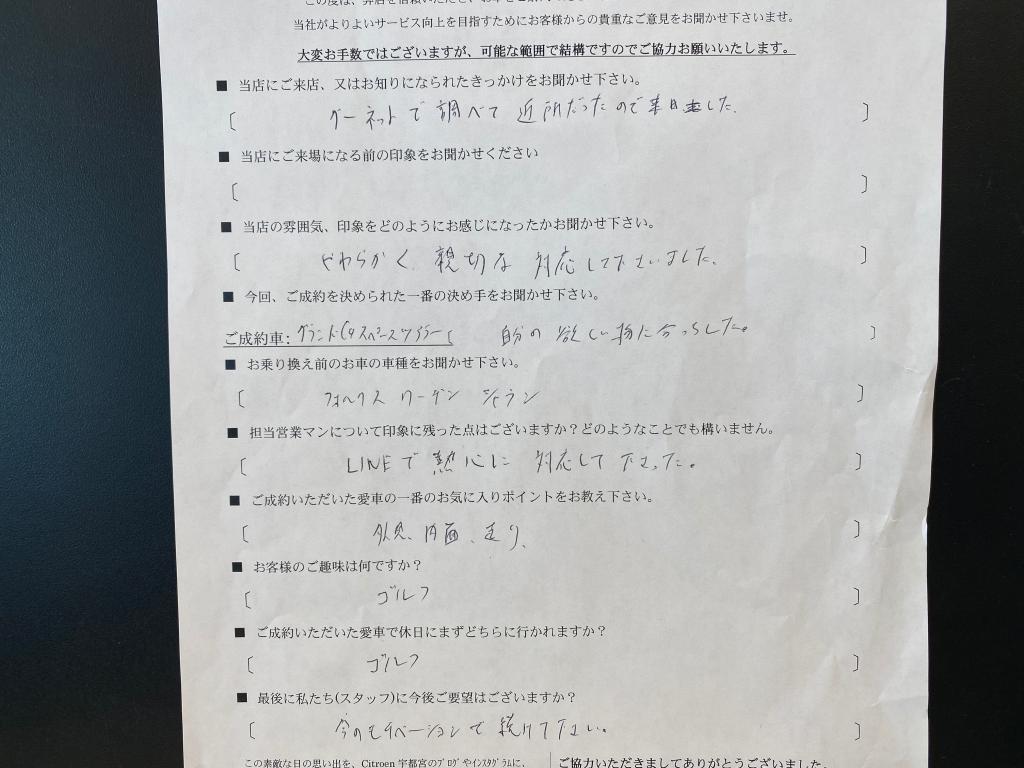 当社がよりよいサービス向上を目指すためにお客様からの貴重なご意見をお聞かせ下さいませ。
大変お手数ではございますが、可能な範囲で結構ですのでご協力お願いいたします。
■ 当店にご来店、又はお知りになられたきっかけをお聞かせ下さい。
〔 グーネットで調べて 近所だったので来ました。 〕
■ 当店にご来場になる前の印象をお聞かせください
〔 〕
■ 当店の雰囲気、印象をどのようにお感じになったかお聞かせ下さい。
〔 やわらかく、親切な 対応して下さいました。 〕
■ 今回、ご成約を決められた一番の決め手をお聞かせ下さい。
ご成約車：グランドC4スペースツアラー〔 自分の 欲しい物に合っ した。 〕
■ お乗り換え前のお車の車種をお聞かせ下さい。
〔 フォルクス ワーゲン シャラン 〕
■ 担当営業マンについて印象に残った点はございますか？どのようなことでも構いません。
〔 LINEで 熱心に 対応して 下さった。 〕
■ ご成約いただいた愛車の一番のお気に入りポイントをお教え下さい。
〔 外見、内面、走り、 〕
■ お客様のご趣味は何ですか？
〔 ゴルフ 〕
■ ご成約いただいた愛車で休日にまずどちらに行かれますか？
〔 ゴルフ 〕
■ 最後に私たち(スタッフ)に今後ご要望はございますか？
〔 今のモチベーションで 続けて下さい。 〕
この素敵な日の思い出を、Citroen 宇都宮のブログやインスタグラムに、
ご協力いただきましてありがとうございました。